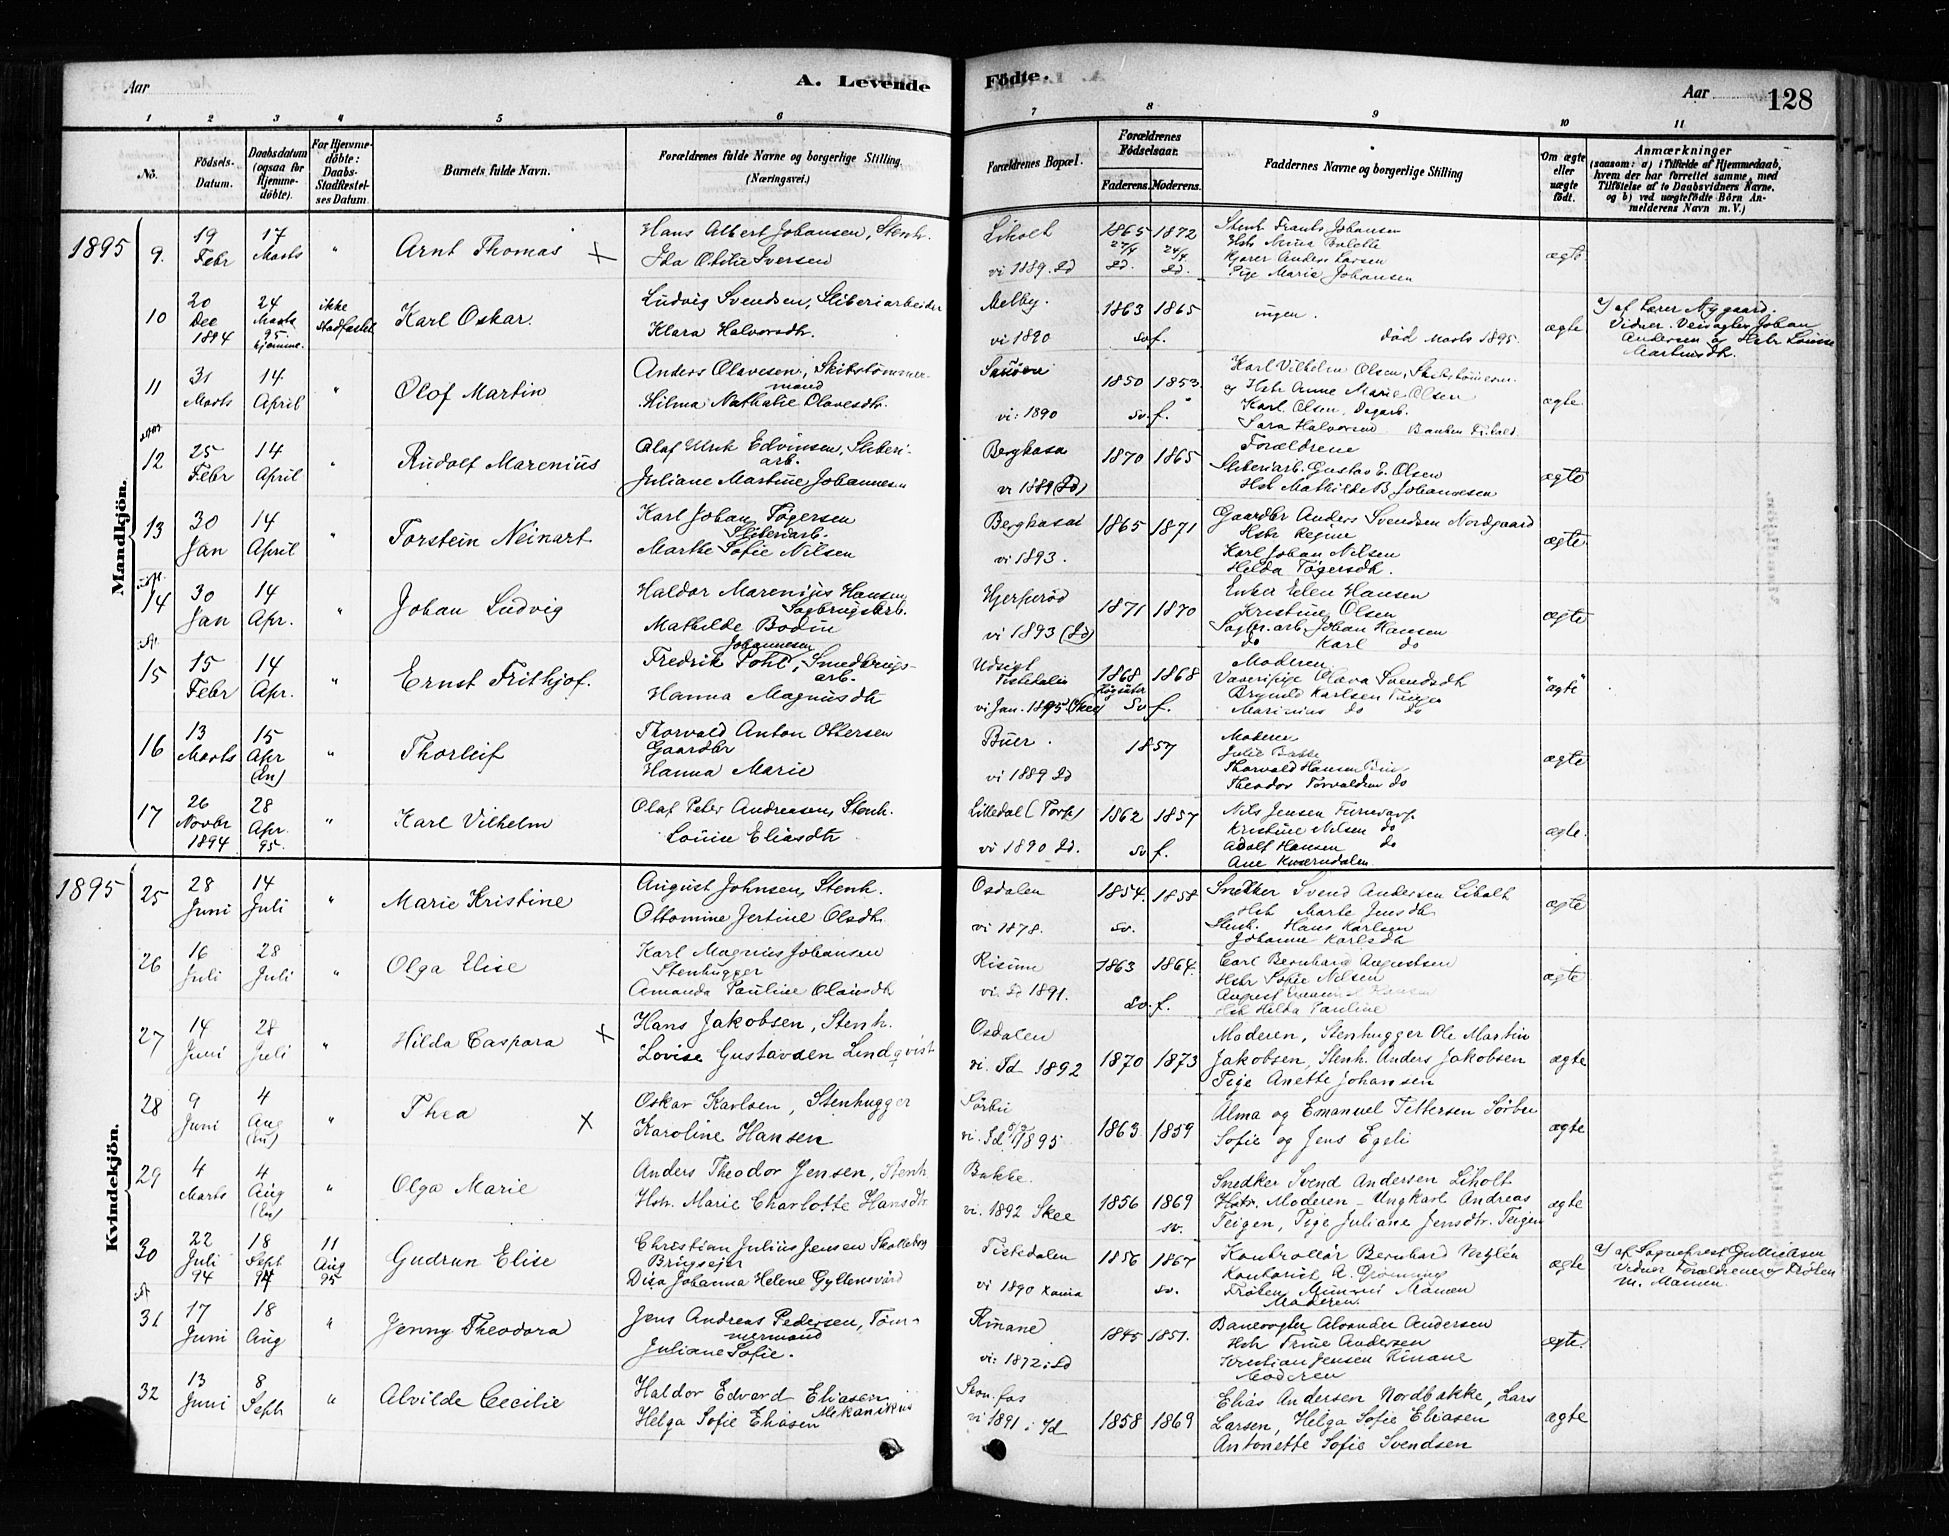 Aar
A. Levende
Födte.
Aar
128
1 2 3 4 5 6 7 8 9 10 11
No.
Födsels-Datum.
Daabsdatum (ogsaa for Hjemme-döbte).
For Hjemme-döbte: Daabs-Stadfæstel-ses Datum.
Barnets fulde Navn.
Forældrenes fulde Navne og borgerlige Stilling
(Næringsvei.)
Forældrenes Bopæl.
Forældrenes Födselsaar.
Faderens. Moderens.
Faddernes Navne og borgerlige Stilling
Om ægte eller uægte födt.
Anmærkninger
(saasom: a) i Tilfælde af Hjemmedaab,
hvem der har forrettet samme, med
Tilföielse af to Daabsvidners Navne.
og b) ved uægtefödte Börn An-
melderens Navn m.V.)
Mandkjön.
1895
9. 19 Febr 17 Marts " Arnt Thomas ×
Hans Albert Johansen, Stenh.
Ida Otilie Iversen
Liholt
vi 1889. Id
1865 27/4 Id. 1872 24/4 Id.
Stenh Frants Johansen
Hst Mina
Kjører Anders Larsen
Pige Marie Johansen
ægte
10 20 Dec 1894 24 Marts 95 hjemme. ikke stadfæstet Karl Oskar.
Ludvig Svendsen, Sliberiarbeider
Klara Halvorsdtr.
Melby.
vi 1890
1863 1865
sv. f.
ingen.
død Marts 1895.
ægte
a/ af Lærer Nygaard.
Vidner. Johan
Andersen og Hstr Louise
11 31 Marts 14. April " Olof Martin
Anders Olavesen, Skibstømmer-
mand
Hilma Nathalie Olavesdtr.
vi: 1890
1850 1853.
sv. f.
Karl Vilhelm Olsen, Skibstømerm.
og Hstr Anne Marie Olsen
Karl Olsen, Dagarb.
Sara Halvorsen
ægte.
12 25 Febr 14 April " Rudolf Marenius
Olaf Ulrik Edvinsen, Sliberi-
arb.
Juliane Martine Johannesen
Berghasa
vi 1889 (Id)
1870 1865
Forældrene
Sliberiarb. Gustav E. Olsen
Hst Mathilde B Johannesen
ægte
13 30 Jan 14 April " Torstein Neinart
Karl Johan Tøgersen
Sliberiarb.
Marthe Sofie Nilsen
Berghasa
vi 1893.
1865 1871
Gaardbr Anders Svendsen Nordgaard
Hstr Regine
Karl Johan Nilsen
Hilda Tøgersdtr.
ægte.
14 30 Jan 14 Apr. " Johan Ludvig
Haldor Marenius Hansen
Sagbrugsarb.
Mathilde Bodin
Hjerperød
vi 1893 (Id)
1871 1870
Enke Elen Hansen
Kristine Olsen
Sagbr. arb. Johan Hansen
do Karl do
ægte
15 15 Febr 14 Apr. " Ernst Frithjof.
Johannesen
Fredrik Pohl, Smedbrugs-
arb.
Hanna Magnusdtr
Udsigt
Tistedalen
vi Jan. 1895 (Skee)
1868 1868
sv f.
Moderen
Væveripige Olava Svendsdtr
Brynild Karlsen
Marinius do do
"ægte"
16 13 Marts 15 Apr (En) " Thorleif
Thorvald Anton Ottersen
Gaardbr
Hanna Marie
Buer.
vi 1889 Id
1857
Moderen
Julie
Thorvald Hansen
Theodor Torvaldsen do
ægte
17 26 Novbr 1894 28 Apr. 95. " Karl Vilhelm
Olaf Peter Andreasen, Stenh.
Louise Eliasdtr
Lilledal (Torp)
vi 1890 Id.
1862 1857
sv f.
Nils Jensen
Kristine Nilsen do
Adolf Hansen do
Ane Kværndalen
ægte.
Kvindekjön.
1895
25 28 Juni 14 Juli " Marie Kristine
August Johnsen, Stenh.
Ottomine Jertine Olsdtr.
Osdalen
vi 1878.
1854. 1858
sv.
Snekker Svend Andersen Liholt
Hst Marte Jensdtr
Stenh. Hans Karlsen
Johanne Karlsdtr
ægte
26 16 Juli 28 Juli " Olga Elise
Karl Magnus Johansen
Stenhugger
Amanda Pauline Olausdtr
Risum
vi. Id 1891.
1863 1864.
sv. f.
Carl Bernhard Augustsen
Hstr Sofie Nilsen
August Emanuel
Hst Hilda Pauline
ægte
27 14 Juni 28 Juli " Hilda Caspara ×
Hans Jakobsen, Stenh.
Lovise Gustavsen Lindqvist
Osdalen
vi. Id 1892
1870 1873
Moderen, Stenhugger Ole Martin
Jakobsen, Stenh. Anders Jakobsen
Pige Anette Johansen
ægte
28 9 Juni 4 Aug (En) " Thea ×
Oskar Karlsen, Stenhugger
Karoline Hansen
Sørbø
vi. Id 1895
1863 1859
Alma og Emanuel Pettersen Sørbø
Sofie og Jens Egeli
ægte
29 4 Marts 4 Aug (En) " Olga Marie
Anders Theodor Jensen, Stenh
Hstr. Marie Charlotte Hansdtr
Bakke.
vi. 1892 Skee
1856 1869
sv.
Snedker Svend Andersen Liholt
Hstr. Moderen - Ungkarl Andreas
Teigen, Pige Juliane Jensdtr. Teigen
ægte
30 22 Juli 94 18 Sept 94 11 Aug 95 Gudrun Elise
Christian Julius Jensen Skolleborg
Brugseier
Disa Johanna Helene Gyllensvärd
Tistedalen
vi 1890 Xania
1856 1867
sv.
Kontrollør Bernhard
Kontorist A. Grønning
Frøken Mamen
Moderen.
ægte
a/ af Sognepræst Gulliksen
Vidner Forældrene og Frøken
M. Mamen.
31 17 Juni 18 Aug " Jenny Theodora
Jens Andreas Pedersen, Tøm-
mermand
Juliane Sofie.
Kinane
vi: 1872 i Id
1845 1851.
Banevogter Alexander Andersen
Hst Trine Andersen
Kristian Jensen Kinane
Moderen
ægte.
32 13 Juni 8 Septb " Alvilde Cecilie
Haldor Edvard Eliasen
Mekanikus
Helga Sofie Eliasen
vi 1891 i Id
1858 1869
Elias Andersen Nordbakke, Lars
Larsen, Helga Sofie Eliasen
Antonette Sofie Svendsen
ægte